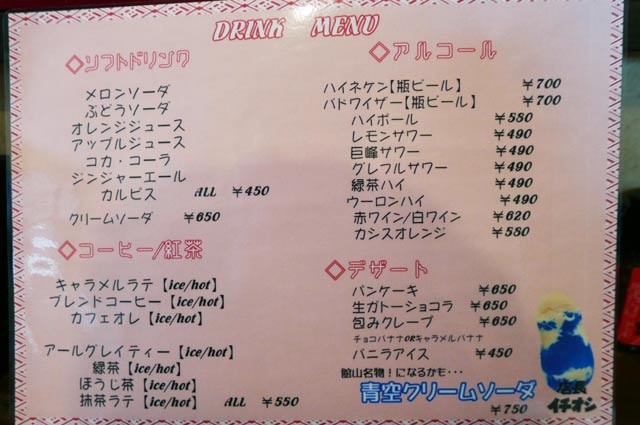 DRINK MENU
◇ソフトドリンク
メロンソーダ
ぶどうソーダ
オレンジジュース
アップルジュース
コカ・コーラ
ジンジャーエール
カルピス ALL ￥450
クリームソーダ ￥650
◇コーヒー/紅茶
キャラメルラテ【ice/hot】
ブレンドコーヒー【ice/hot】
カフェオレ【ice/hot】
アールグレイティー【ice/hot】
緑茶【ice/hot】
ほうじ茶【ice/hot】
抹茶ラテ【ice/hot】 ALL ￥550
◇アルコール
ハイネケン【瓶ビール】 ￥700
バドワイザー【瓶ビール】 ￥700
ハイボール ￥580
レモンサワー ￥490
巨峰サワー ￥490
グレフルサワー ￥490
緑茶ハイ ￥490
ウーロンハイ ￥490
赤ワイン/白ワイン ￥620
カシスオレンジ ￥580
◇デザート
パンケーキ ￥650
生ガトーショコラ ￥650
包みクレープ ￥650
チョコバナナORキャラメルバナナ
バニラアイス ￥450
館山名物！になるかも・・・
青空クリームソーダ
￥750
店長
イチオシ